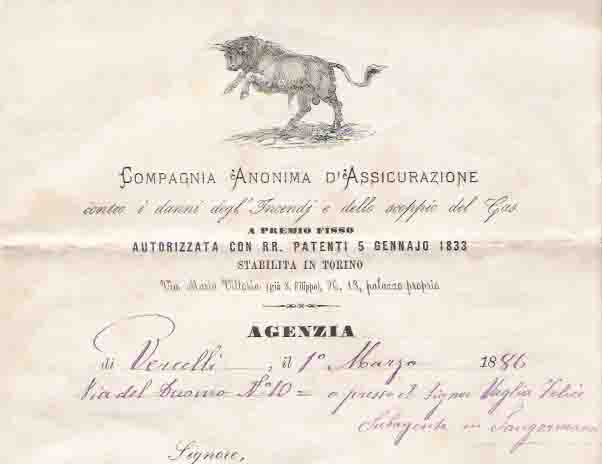 COMPAGNIA ANONIMA D'ASSICURAZIONE
contro i danni degl'Incendj e dello scoppio del Gas
A PREMIO FISSO
AUTORIZZATA CON RR. PATENTI 5 GENNAJO 1833
STABILITA IN TORINO
Via Maria Vittoria (già S. Filippo), N. 18, palazzo proprio
AGENZIA
di Vercelli, il 1º Marzo 1886
Via del Duomo Nº 10 = o presso il Signor Veglia Felice
Subagente in Sangermano
Signore,